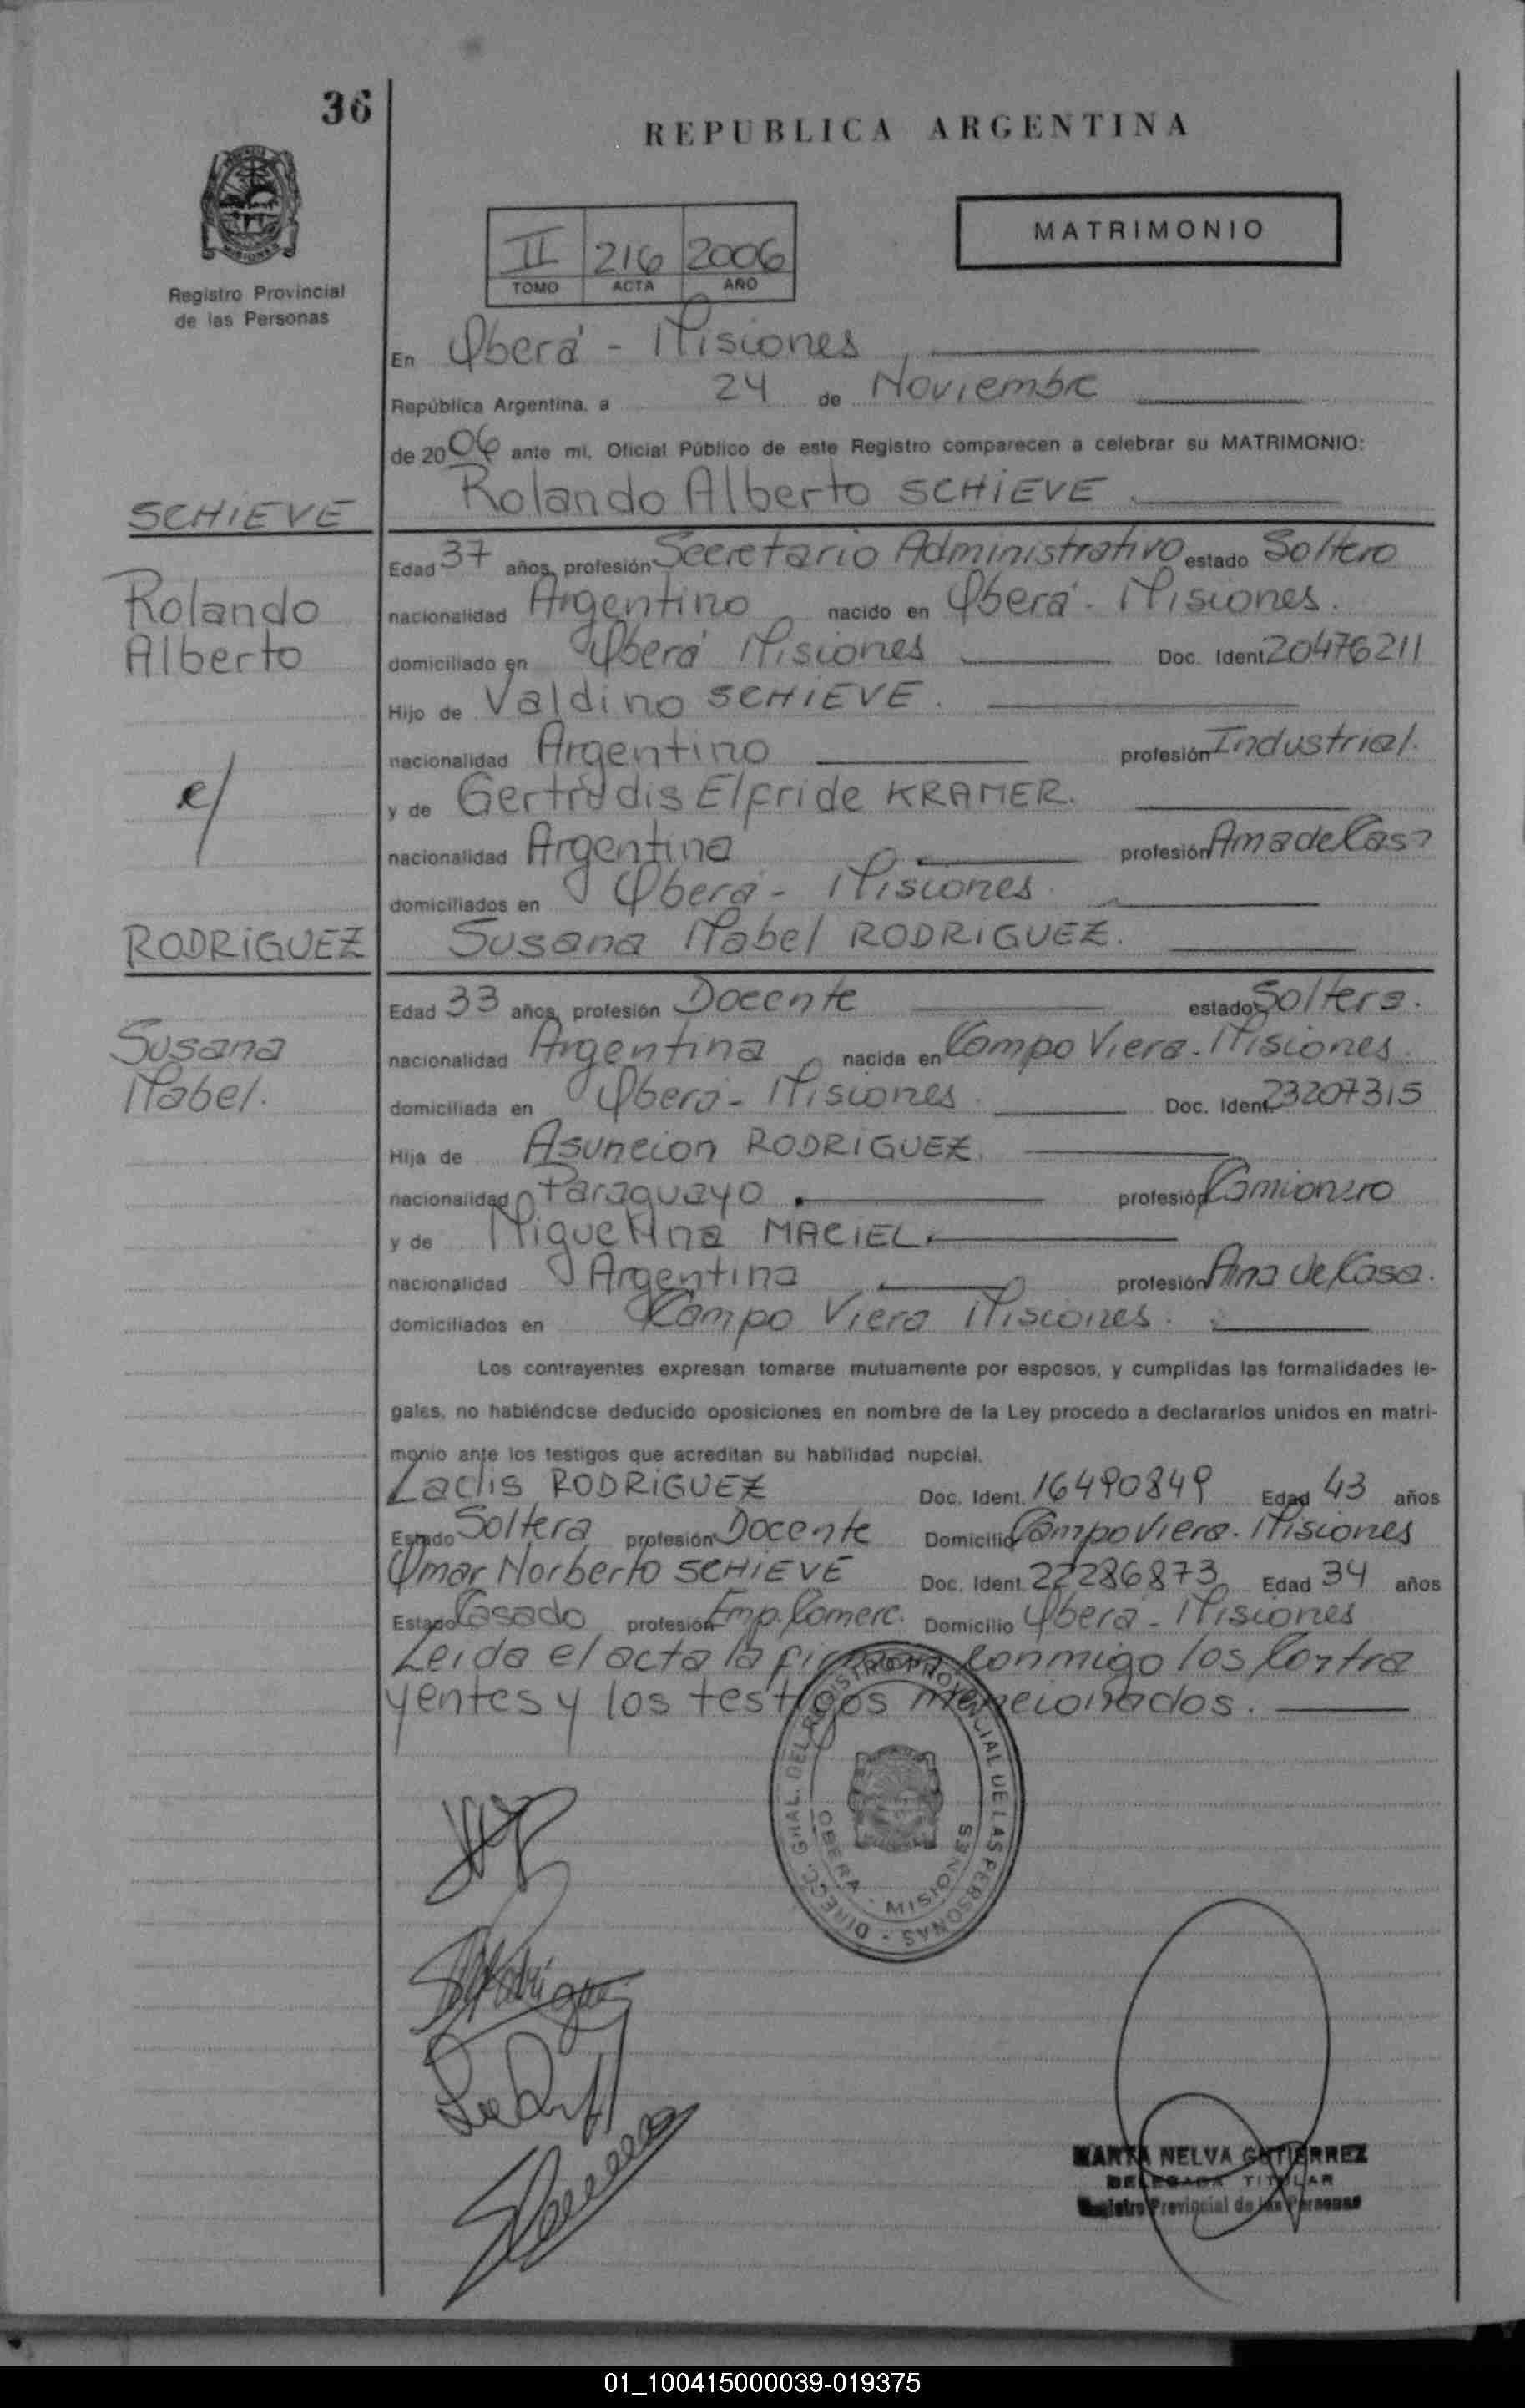 36
REPUBLICA ARGENTINA
MATRIMONIO
II 216 2006
TOMO ACTA AÑO
Registro Provincial
de las Personas
En Oberá - Misiones
República Argentina, a 24 de Noviembre
de 2006 ante mi, Oficial Público de este Registro comparecen a celebrar su MATRIMONIO:
Rolando Alberto SCHIEVE
SCHIEVE
Rolando
Alberto
c/
Edad 37 años, profesión Secretario Administrativo estado Soltero
nacionalidad Argentino nacido en Oberá - Misiones.
domiciliado en Oberá Misiones Doc. Ident 20476211
Hijo de Valdino SCHIEVE.
nacionalidad Argentino profesión Industrial.
y de Gertrudis Elfride KRAMER.
nacionalidad Argentina profesión Ama de Casa
domiciliados en Oberá - Misiones.
Susana Mabel RODRIGUEZ.
RODRIGUEZ
Susana
Mabel.
Edad 33 años, profesión Docente estado Soltera.
nacionalidad Argentina nacida en Campo Viera - Misiones.
domiciliada en Oberá - Misiones. Doc. Ident 23207315
Hija de Asuncion RODRIGUEZ.
nacionalidad Paraguayo profesión Camionero
y de Miguelina MACIEL.
nacionalidad Argentina profesión Ama de Casa.
domiciliados en Campo Viera Misiones.
Los contrayentes expresan tomarse mutuamente por esposos, y cumplidas las formalidades le-
gales, no habiéndose deducido oposiciones en nombre de la Ley procedo a declararlos unidos en matri-
monio ante los testigos que acreditan su habilidad nupcial.
RODRIGUEZ Doc. Ident. 16490849 Edad 43 años
Estado Soltera profesión Docente Domicilio Campo Viera - Misiones
Omar Norberto SCHIEVE Doc. Ident 22286873 Edad 34 años
Estado Casado profesión Emp. Comerc. Domicilio Oberá - Misiones
Leida el acta la firman conmigo los Contra
yentes y los testigos mencionados.
DIRECC. GRAL. DEL REGISTRO PROVINCIAL DE LAS PERSONAS -
OBERA - MISIONES
MARTA NELVA GUTIERREZ
DELEGADA TITULAR
Registro Provincial de las Personas
01_100415000039-019375